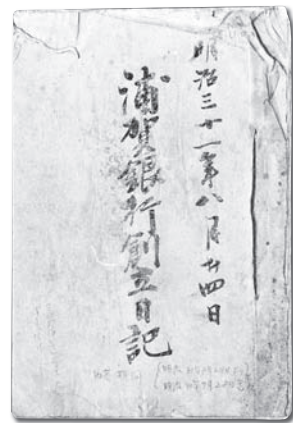 明治三十一年八月廿四日
浦賀銀行創立日記